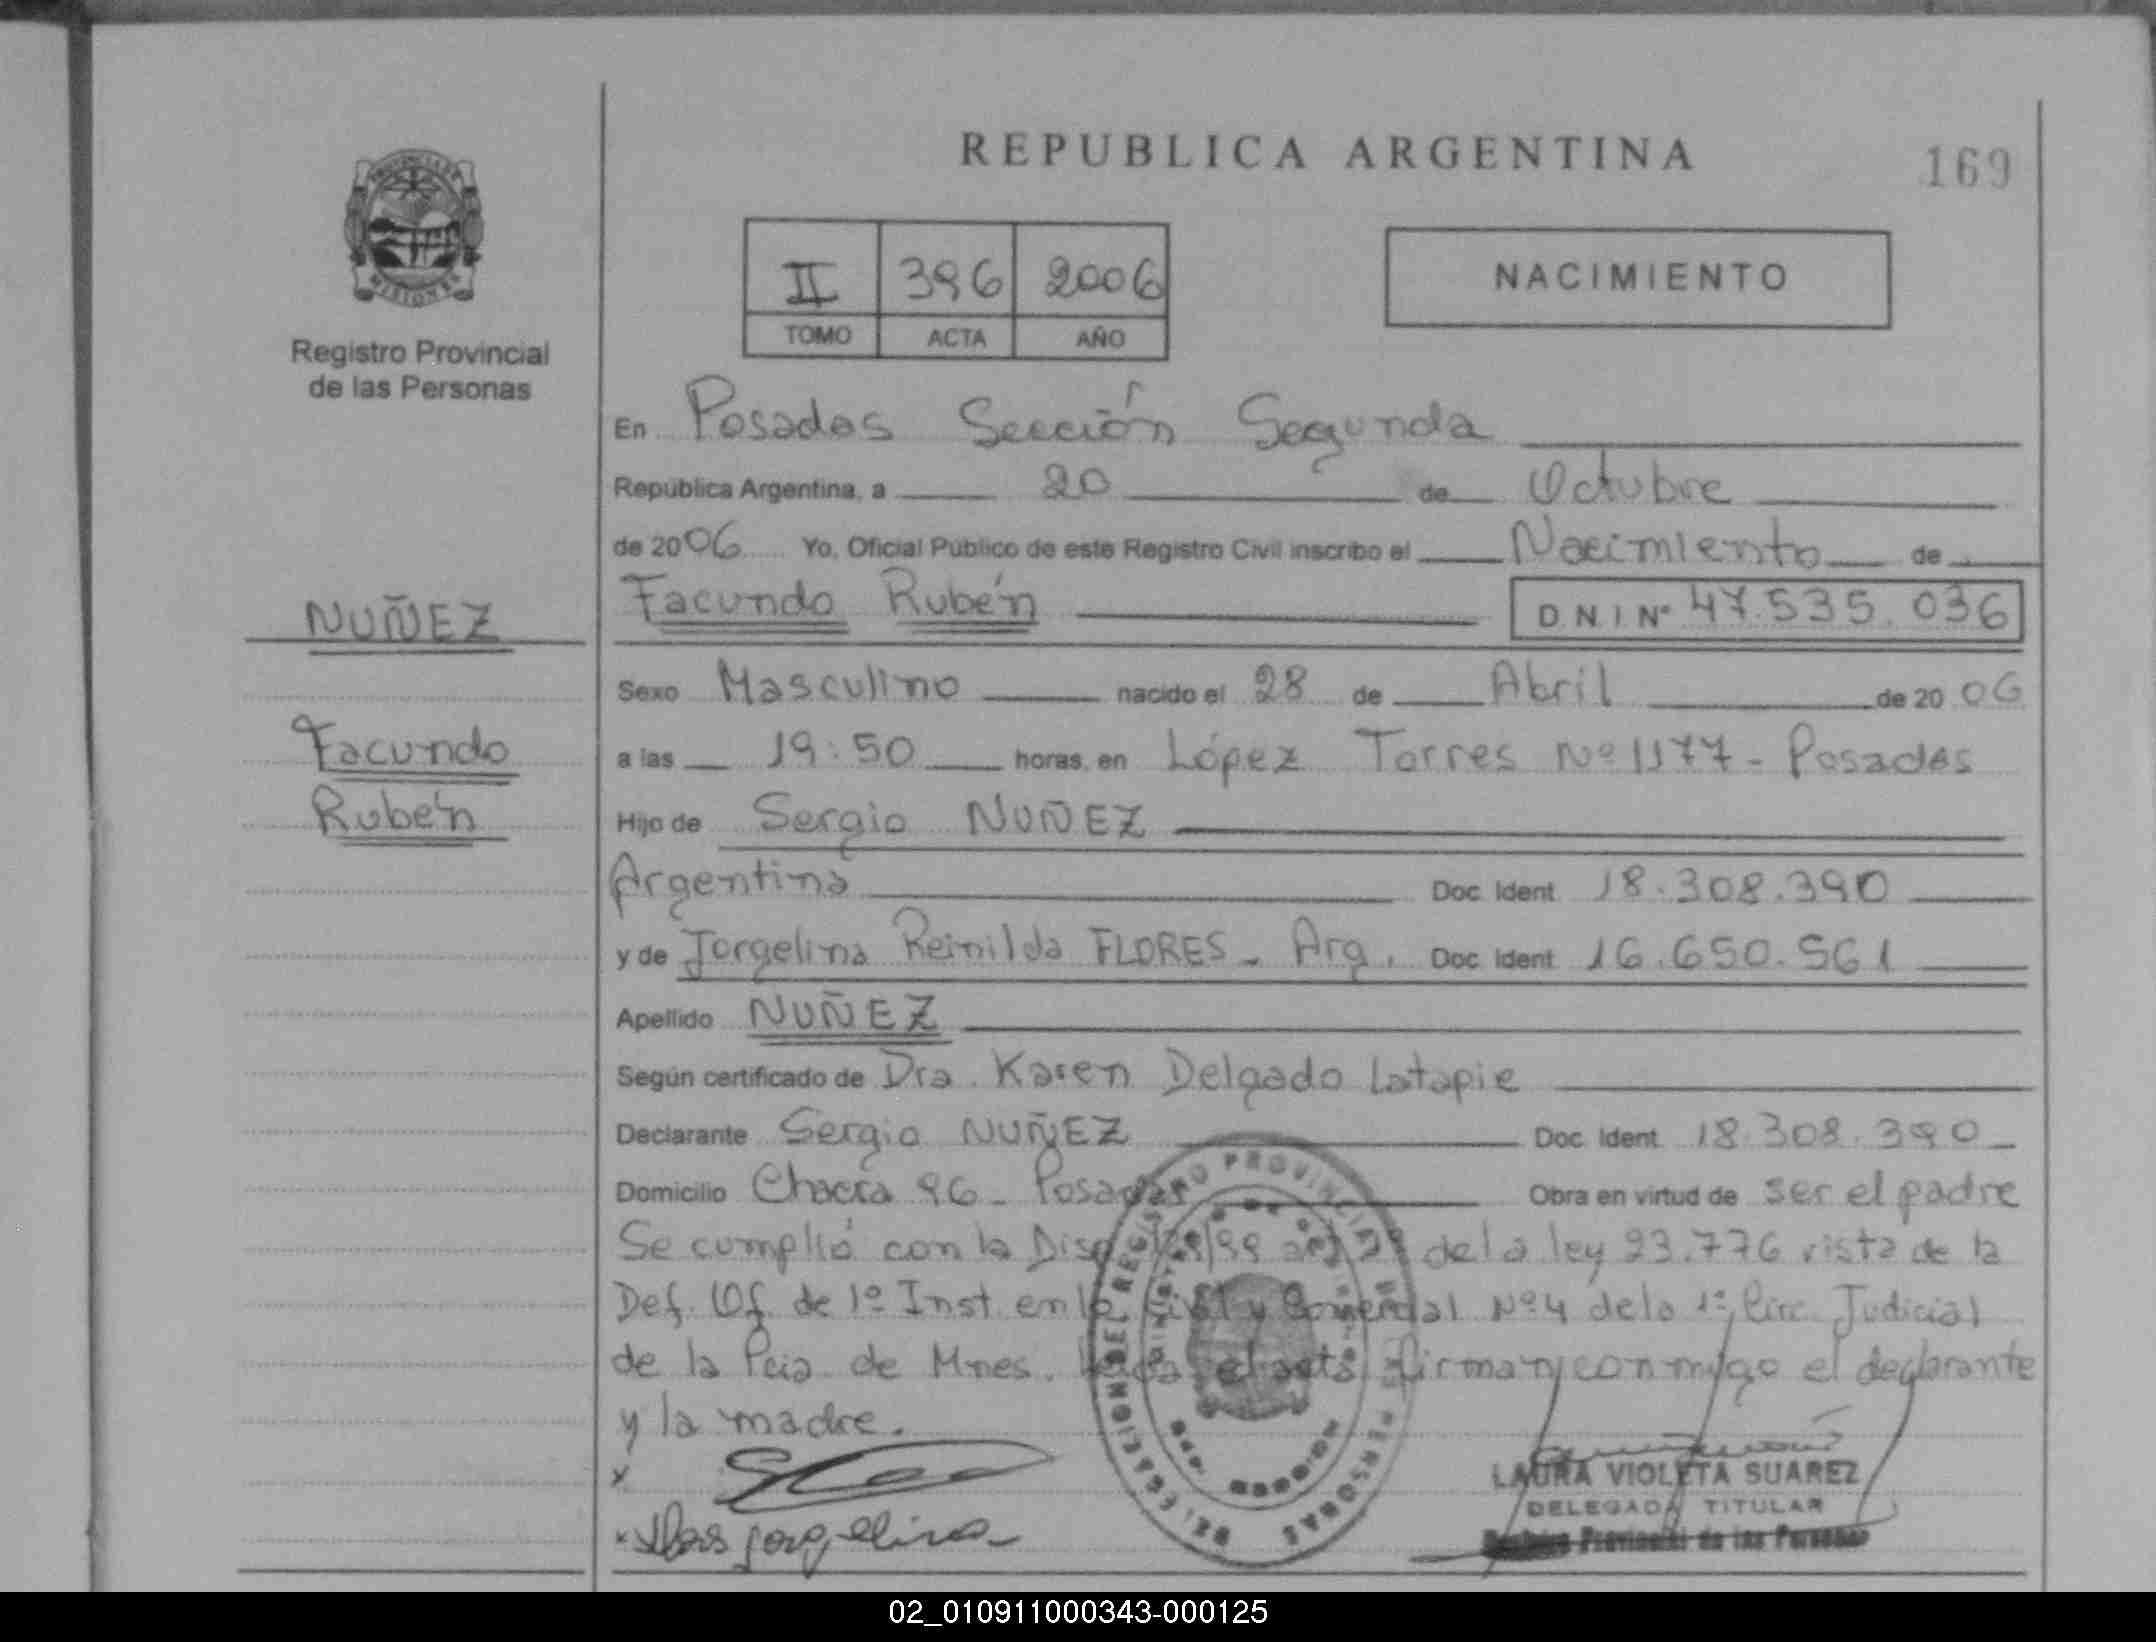 REPUBLICA ARGENTINA
169
PROVINCIA DE
MISIONES
Registro Provincial
de las Personas
II 396 2006
TOMO ACTA AÑO
NACIMIENTO
En Posadas Sección Segunda
República Argentina, a 20 de Octubre
de 2006 Yo, Oficial Público de este Registro Civil inscribo el Nacimiento de
NUÑEZ
Facundo Rubén
D.N.I Nº 47.535.036
Sexo Masculino nacido el 28 de Abril de 2006
Facundo
a las 19:50 horas, en López Torres Nº 1177 - Posadas
Rubén
Hijo de Sergio NUÑEZ
Argentina Doc. Ident. 18.308.390
y de Jorgelina Reinilda FLORES - Arg. Doc. Ident. 16.650.561
Apellido NUÑEZ
Según certificado de Dra. Karen Delgado Latapie
Declarante Sergio NUÑEZ Doc. Ident. 18.308.390
Domicilio Chacra 96 - Posadas Obra en virtud de ser el padre
Se cumplió con la Disp de la ley 23.776 vista de la
Def. Of. de 1º Inst. en lo Civil y Comercial Nº 4 de la 1º Circ. Judicial
de la Pcia. de Mnes. el acta firman conmigo el declarante
y la madre.
x
x Flores Jorgelina
DELEGACION DEL REGISTRO PROVINCIAL DE PERSONAS
LAURA VIOLETA SUAREZ
DELEGADA TITULAR
Registro Provincial de las Personas
02_010911000343-000125